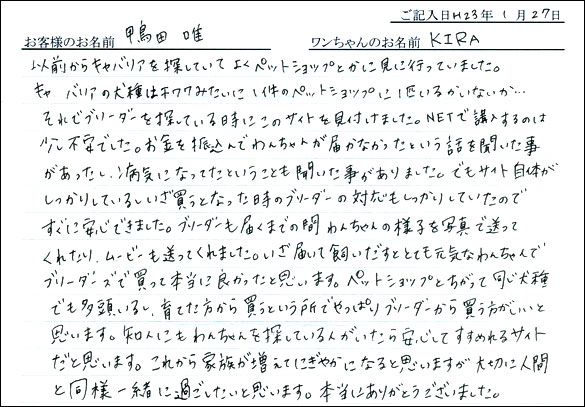 ご記入日H23年1月27日
お客様のお名前 鴨田 唯 ワンちゃんのお名前 KIRA
以前からキャバリアを探していてよくペットショップとかに見に行っていました。
キャバリアの犬種はチワワみたいに1件のペットショップに1匹いるかいないか…
それでブリーダーを探している時にこのサイトを見付けました。NETで購入するのは
少し不安でした。お金を振込んでわんちゃんが届かなかったという話を聞いた事
があったし、病気になってたということも聞いた事がありました。でもサイト自体が
しっかりしているしいざ買うとなった時のブリーダーの対応もしっかりしていたので
すぐに安心できました。ブリーダーも届くまでの間わんちゃんの様子を写真で送って
くれたり、ムービーも送ってくれました。いざ届いて飼いだすととても元気なわんちゃんで
ブリーダーズで買って本当に良かったと思います。ペットショップとちがって同じ犬種
でも多頭いるし、育てた方から買うという所でやっぱりブリーダーから買う方がいいと
思います。知人にもわんちゃんを探している人がいたら安心してすすめれるサイト
だと思います。これから家族が増えてにぎやかになると思いますが大切に人間
と同様一緒に過ごしたいと思います。本当にありがとうございました。